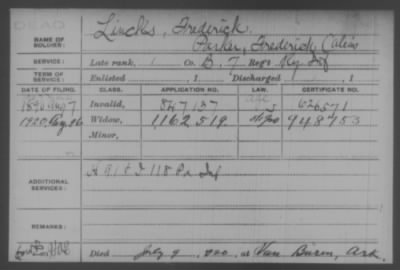 DEAD
NAME OF SOLDIER: Linchs, Frederick
Parker, Frederick Calvin
SERVICE: Late rank, Co. B, 7 Reg't Ky Inf
TERM OF SERVICE: Enlisted , 1 Discharged , 1
DATE OF FILING. CLASS. APPLICATION NO. LAW. CERTIFICATE NO.
1890 Aug 7 Invalid, 847137 626571
1920, Aug 26 Widow, 1,162,519 948753
Minor,
ADDITIONAL SERVICES: 118 Pa Inf
REMARKS:
Died July 9, 1920, at Van Buren, Ark.